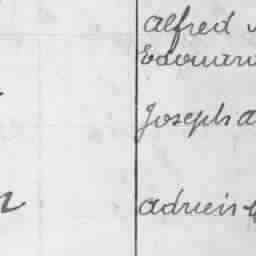 Alfred
Edouard
Joseph a
Adrien